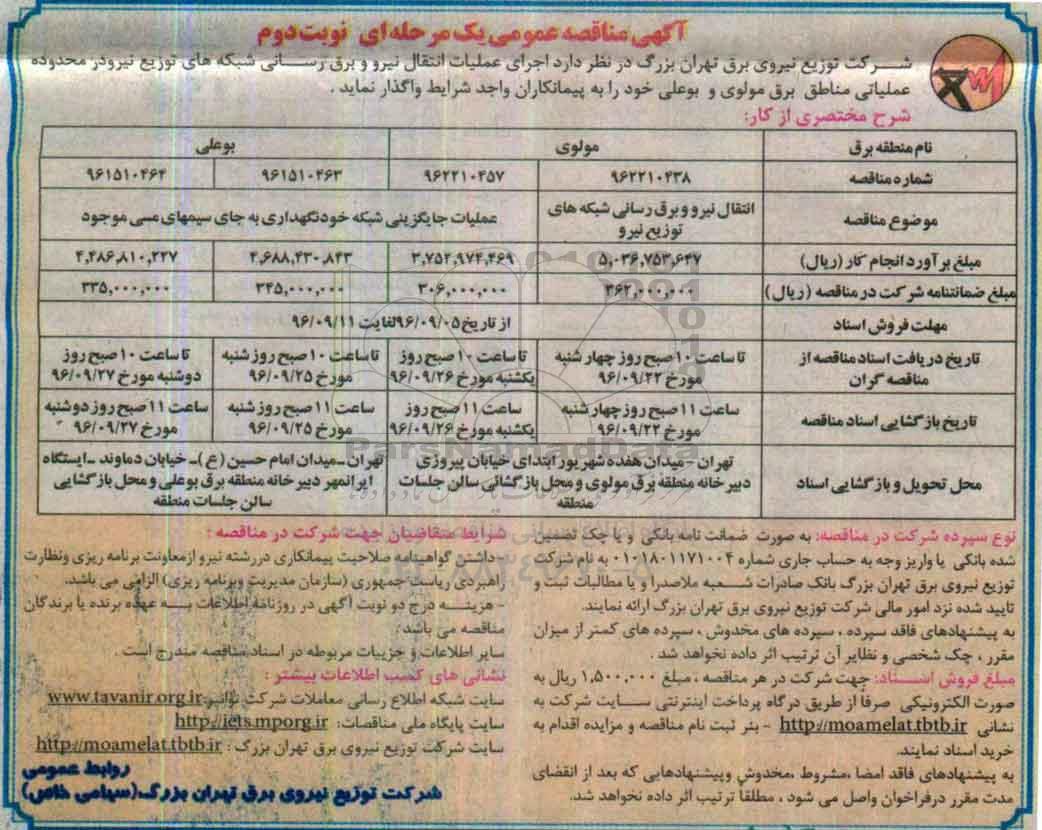 آگهی مناقصه عمومی یک مرحله ای نوبت دوم
شرکت توزیع نیروی برق تهران بزرگ در نظر دارد اجرای عملیات انتقال نیرو و برق رسانی شبکه های توزیع نیرو در محدوده
عملیاتی مناطق برق مولوی و بوعلی خود را به پیمانکاران واجد شرایط واگذار نماید .
شرح مختصری از کار:
نام منطقه برق مولوی بوعلی
شماره مناقصه ۹۶۲۲۱۰۴۳۸ ۹۶۲۲۱۰۴۵۷ ۹۶۱۵۱۰۴۶۳ ۹۶۱۵۱۰۴۶۴
موضوع مناقصه انتقال نیرو و برق رسانی شبکه های توزیع نیرو عملیات جایگزینی شبکه خودنگهداری به جای سیمهای مسی موجود
مبلغ برآورد انجام کار (ریال) ۵,۰۳۶,۷۵۳,۶۴۷ ۳,۷۵۲,۹۷۴,۴۶۹ ۴,۶۸۸,۴۳۰,۸۴۳ ۴,۴۸۶,۸۱۰,۲۲۷
مبلغ ضمانتنامه شرکت در مناقصه (ریال) ۳۶۲,۰۰۰,۰۰۰ ۳۰۶,۰۰۰,۰۰۰ ۳۴۵,۰۰۰,۰۰۰ ۳۳۵,۰۰۰,۰۰۰
مهلت فروش اسناد از تاریخ ۹۶/۰۹/۰۵ لغایت ۹۶/۰۹/۱۱
تاریخ دریافت اسناد مناقصه از مناقصه گران تا ساعت ۱۰ صبح روز چهار شنبه مورخ ۹۶/۰۹/۲۲ تا ساعت ۱۰ صبح روز یکشنبه مورخ ۹۶/۰۹/۲۶ تا ساعت ۱۰ صبح روز شنبه مورخ ۹۶/۰۹/۲۵ تا ساعت ۱۰ صبح روز دوشنبه مورخ ۹۶/۰۹/۲۷
تاریخ بازگشایی اسناد مناقصه ساعت ۱۱ صبح روز چهار شنبه مورخ ۹۶/۰۹/۲۲ ساعت ۱۱ صبح روز یکشنبه مورخ ۹۶/۰۹/۲۶ ساعت ۱۱ صبح روز شنبه مورخ ۹۶/۰۹/۲۵ ساعت ۱۱ صبح روز دوشنبه مورخ ۹۶/۰۹/۲۷
محل تحویل و بازگشایی اسناد تهران - میدان هفده شهریور ابتدای خیابان پیروزی دبیرخانه منطقه برق مولوی و محل بازگشائی سالن جلسات منطقه تهران - میدان امام حسین (ع) - خیابان دماوند - ایستگاه ایرانمهر دبیرخانه منطقه برق بوعلی و محل بازگشایی سالن جلسات منطقه
ParsNamadData
نوع سپرده شرکت در مناقصه: به صورت ضمانت نامه بانکی و یا چک تضمین
شده بانکی یا واریز وجه به حساب جاری شماره ۰۱۰۱۸۰۱۱۷۱۰۰۴ به نام شرکت
توزیع نیروی برق تهران بزرگ بانک صادرات شعبه ملاصدرا و یا مطالبات ثبت و
تایید شده نزد امور مالی شرکت توزیع نیروی برق تهران بزرگ ارائه نمایند.
به پیشنهادهای فاقد سپرده ، سپرده های مخدوش ، سپرده های کمتر از میزان
مقرر ، چک شخصی و نظایر آن ترتیب اثر داده نخواهد شد .
مبلغ فروش اسناد: جهت شرکت در هر مناقصه ، مبلغ ۱,۵۰۰,۰۰۰ ریال به
صورت الکترونیکی صرفا از طریق درگاه پرداخت اینترنتی سایت شرکت به
نشانی http://moamelat.tbtb.ir - بنر ثبت نام مناقصه و مزایده اقدام به
خرید اسناد نمایند.
به پیشنهادهای فاقد امضا ،مشروط ،مخدوش وپیشنهادهایی که بعد از انقضای
مدت مقرر درفراخوان واصل می شود ، مطلقا ترتیب اثر داده نخواهد شد.
شرایط متقاضیان جهت شرکت در مناقصه :
-داشتن گواهینامه صلاحیت پیمانکاری در رشته نیرو ازمعاونت برنامه ریزی ونظارت
راهبردی ریاست جمهوری (سازمان مدیریت وبرنامه ریزی) الزامی می باشد.
- هزینه درج دو نوبت آگهی در روزنامه اطلاعات به عهده برنده یا برندگان
مناقصه می باشد.
سایر اطلاعات و جزییات مربوطه در اسناد مناقصه مندرج است .
نشانی های کسب اطلاعات بیشتر :
سایت شبکه اطلاع رسانی معاملات شرکت توانیر www.tavanir.org.ir
سایت پایگاه ملی مناقصات: http://iets.mporg.ir
سایت شرکت توزیع نیروی برق تهران بزرگ : http://moamelat.tbtb.ir
روابط عمومی
شرکت توزیع نیروی برق تهران بزرگ (سهامی خاص)